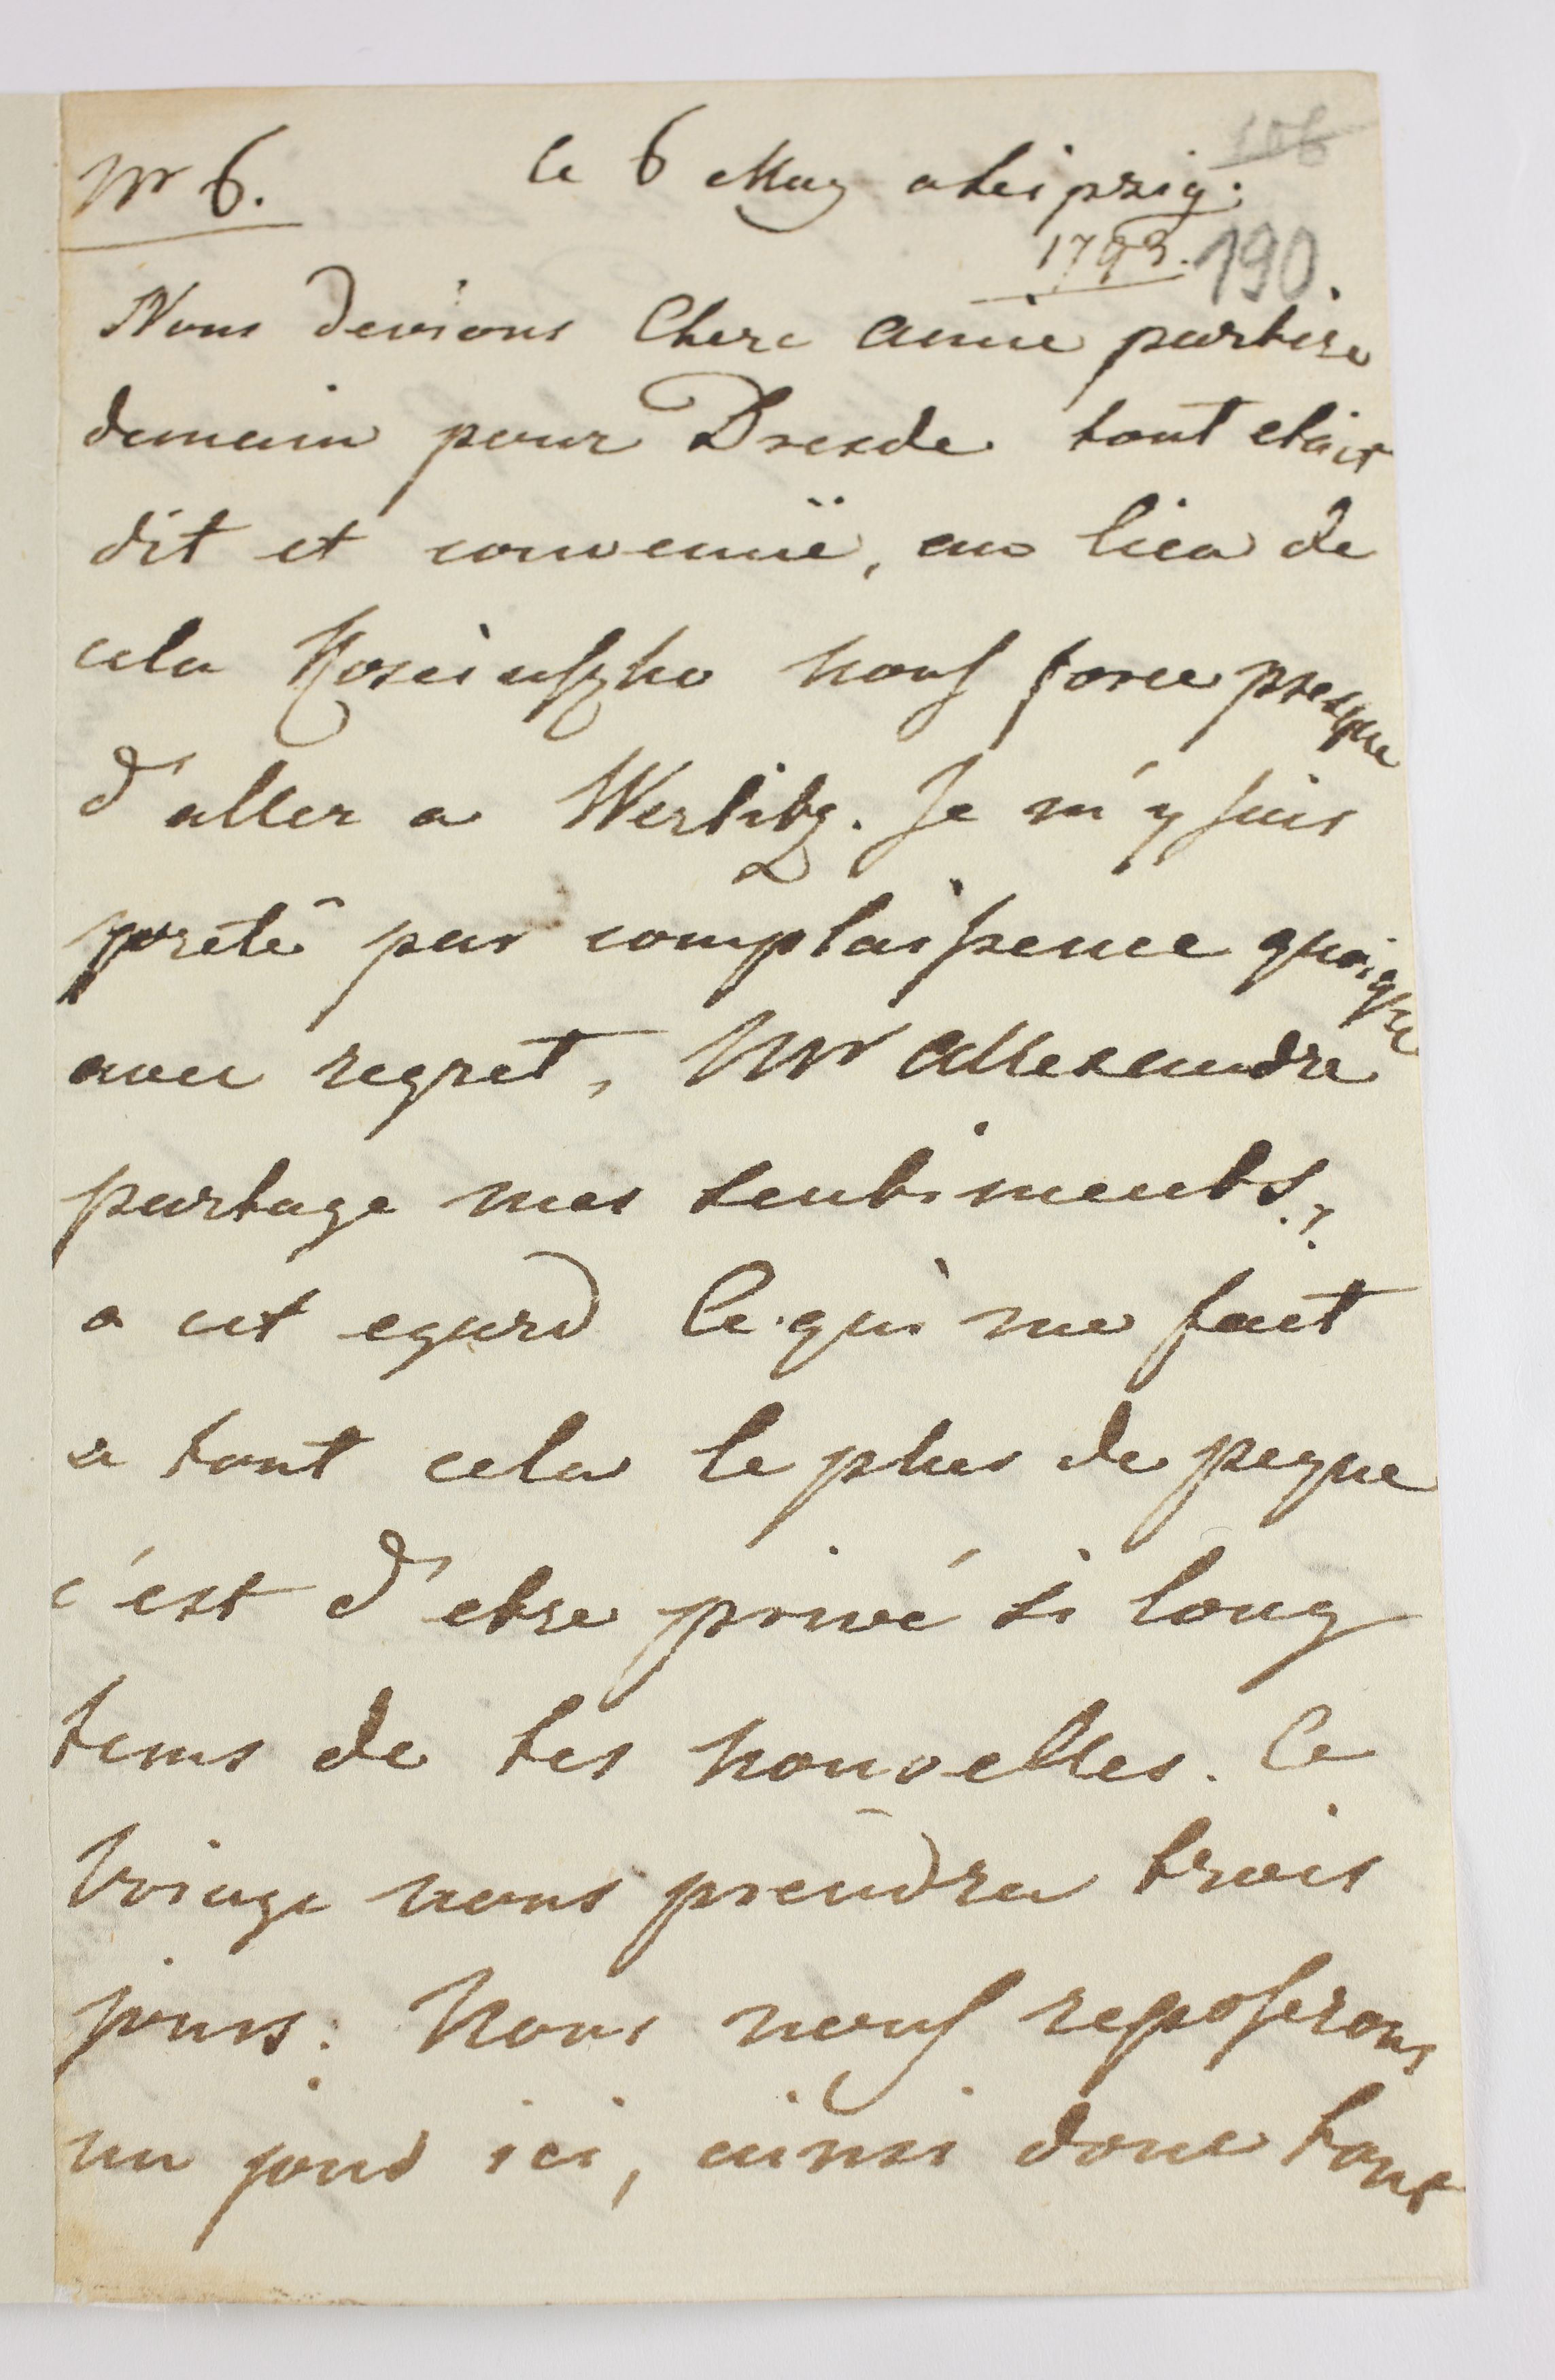 Nr 6. le 6 May a Leipzig.
106
1793. 190.
Nous devions Chere amie partire
demain pour Dresde tout etait
dit et convenuë, au lieu de
cela Kosciuszko nous force presque
d'aller a Werlitz. Je m'y suis
pretê par complaisence quoique
avec regret, Mr Allexandre
partage mes sentiments,
a cet egard Ce qui me fait
a tout cela le plus de pegne
c'est d'etre privé si long
tems de tes nouvelles. Ce
voiage nous prendra trois
jours. Nous nous reposerons
un jour ici, ainsi donc tout